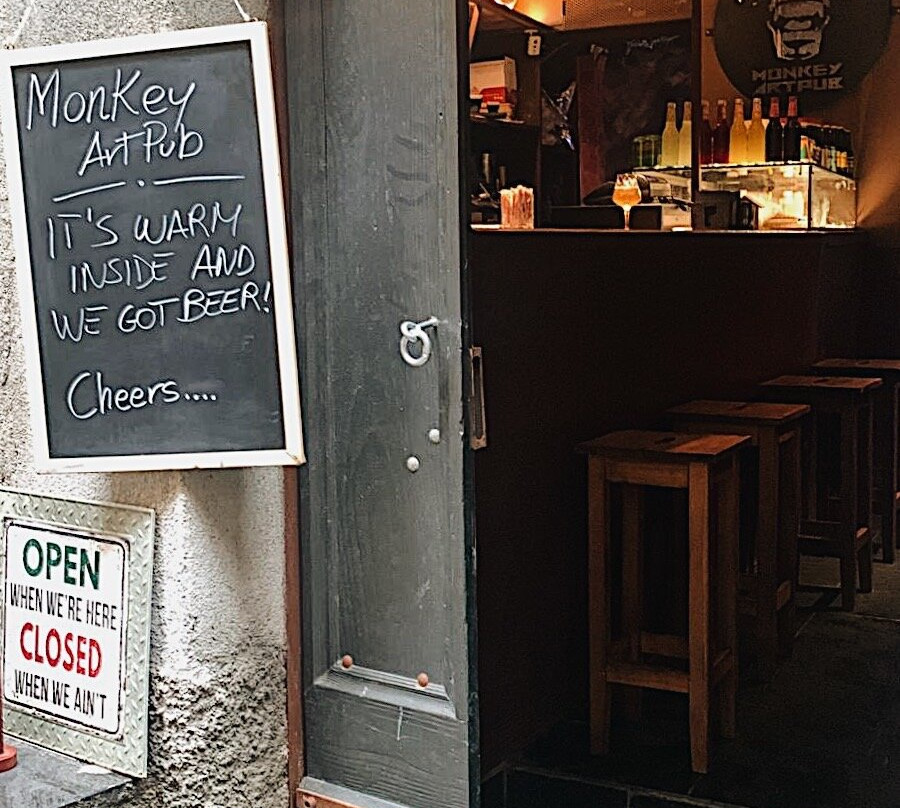 MonKey
Art Pub
IT'S WARM
INSIDE AND
WE GOT BEER!
Cheers....
OPEN
WHEN WE'RE HERE
CLOSED
WHEN WE AIN'T
MONKEY
ARTPUB